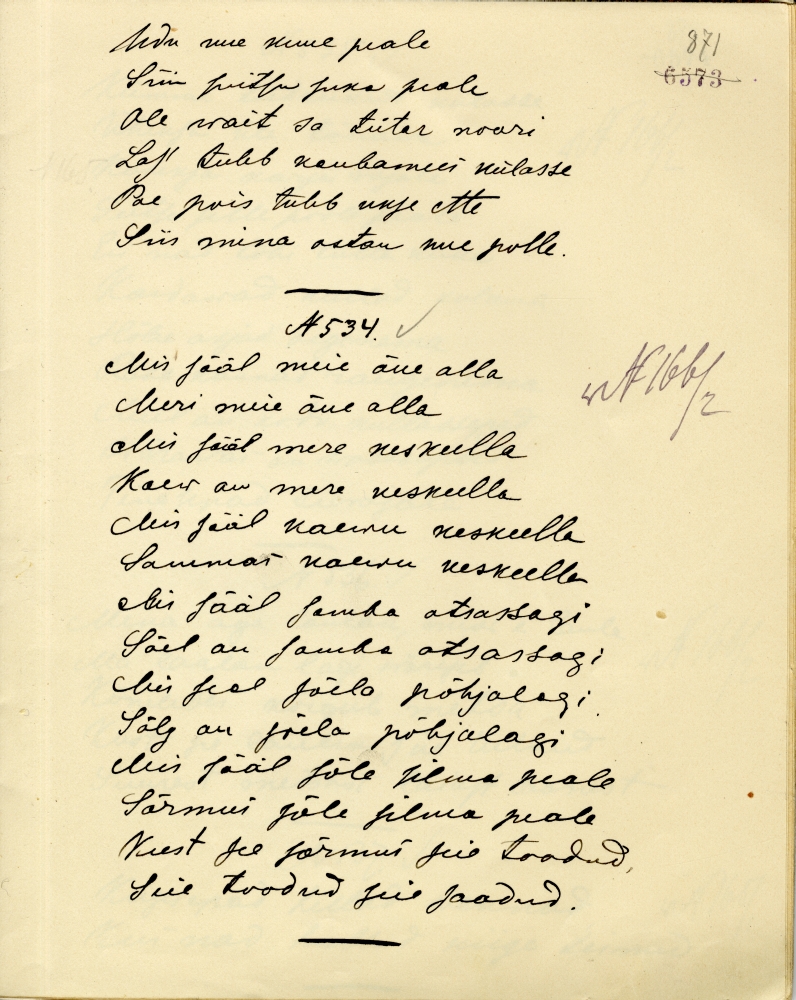 Udu mue kuue peale
Siin suitsu suka peale
Ole wait sa tütar noori
Lass' tuleb kaubamees külasse
Poe pois tuleb ukse ette
Siis mina ostan mue polle.
871
6573
N 534.
Mis sääl meie õue alla
Meri meie õue alla
Mis sääl mere keskeella
Kaew on mere keskeella
Mis sääl kaewu keskeella
Sammas kaewu keskeella
Mis sääl samba otsassagi
Sõel on samba otsassagi
Mis seal sõela põhjalagi
Sõlg on sõela põhjalagi
Mis sääl sõle silma peale
Sõrmus sõle silma peale
Kust see sõrmus siie toodud,
Siie toodud siie saadud.
N 166/2